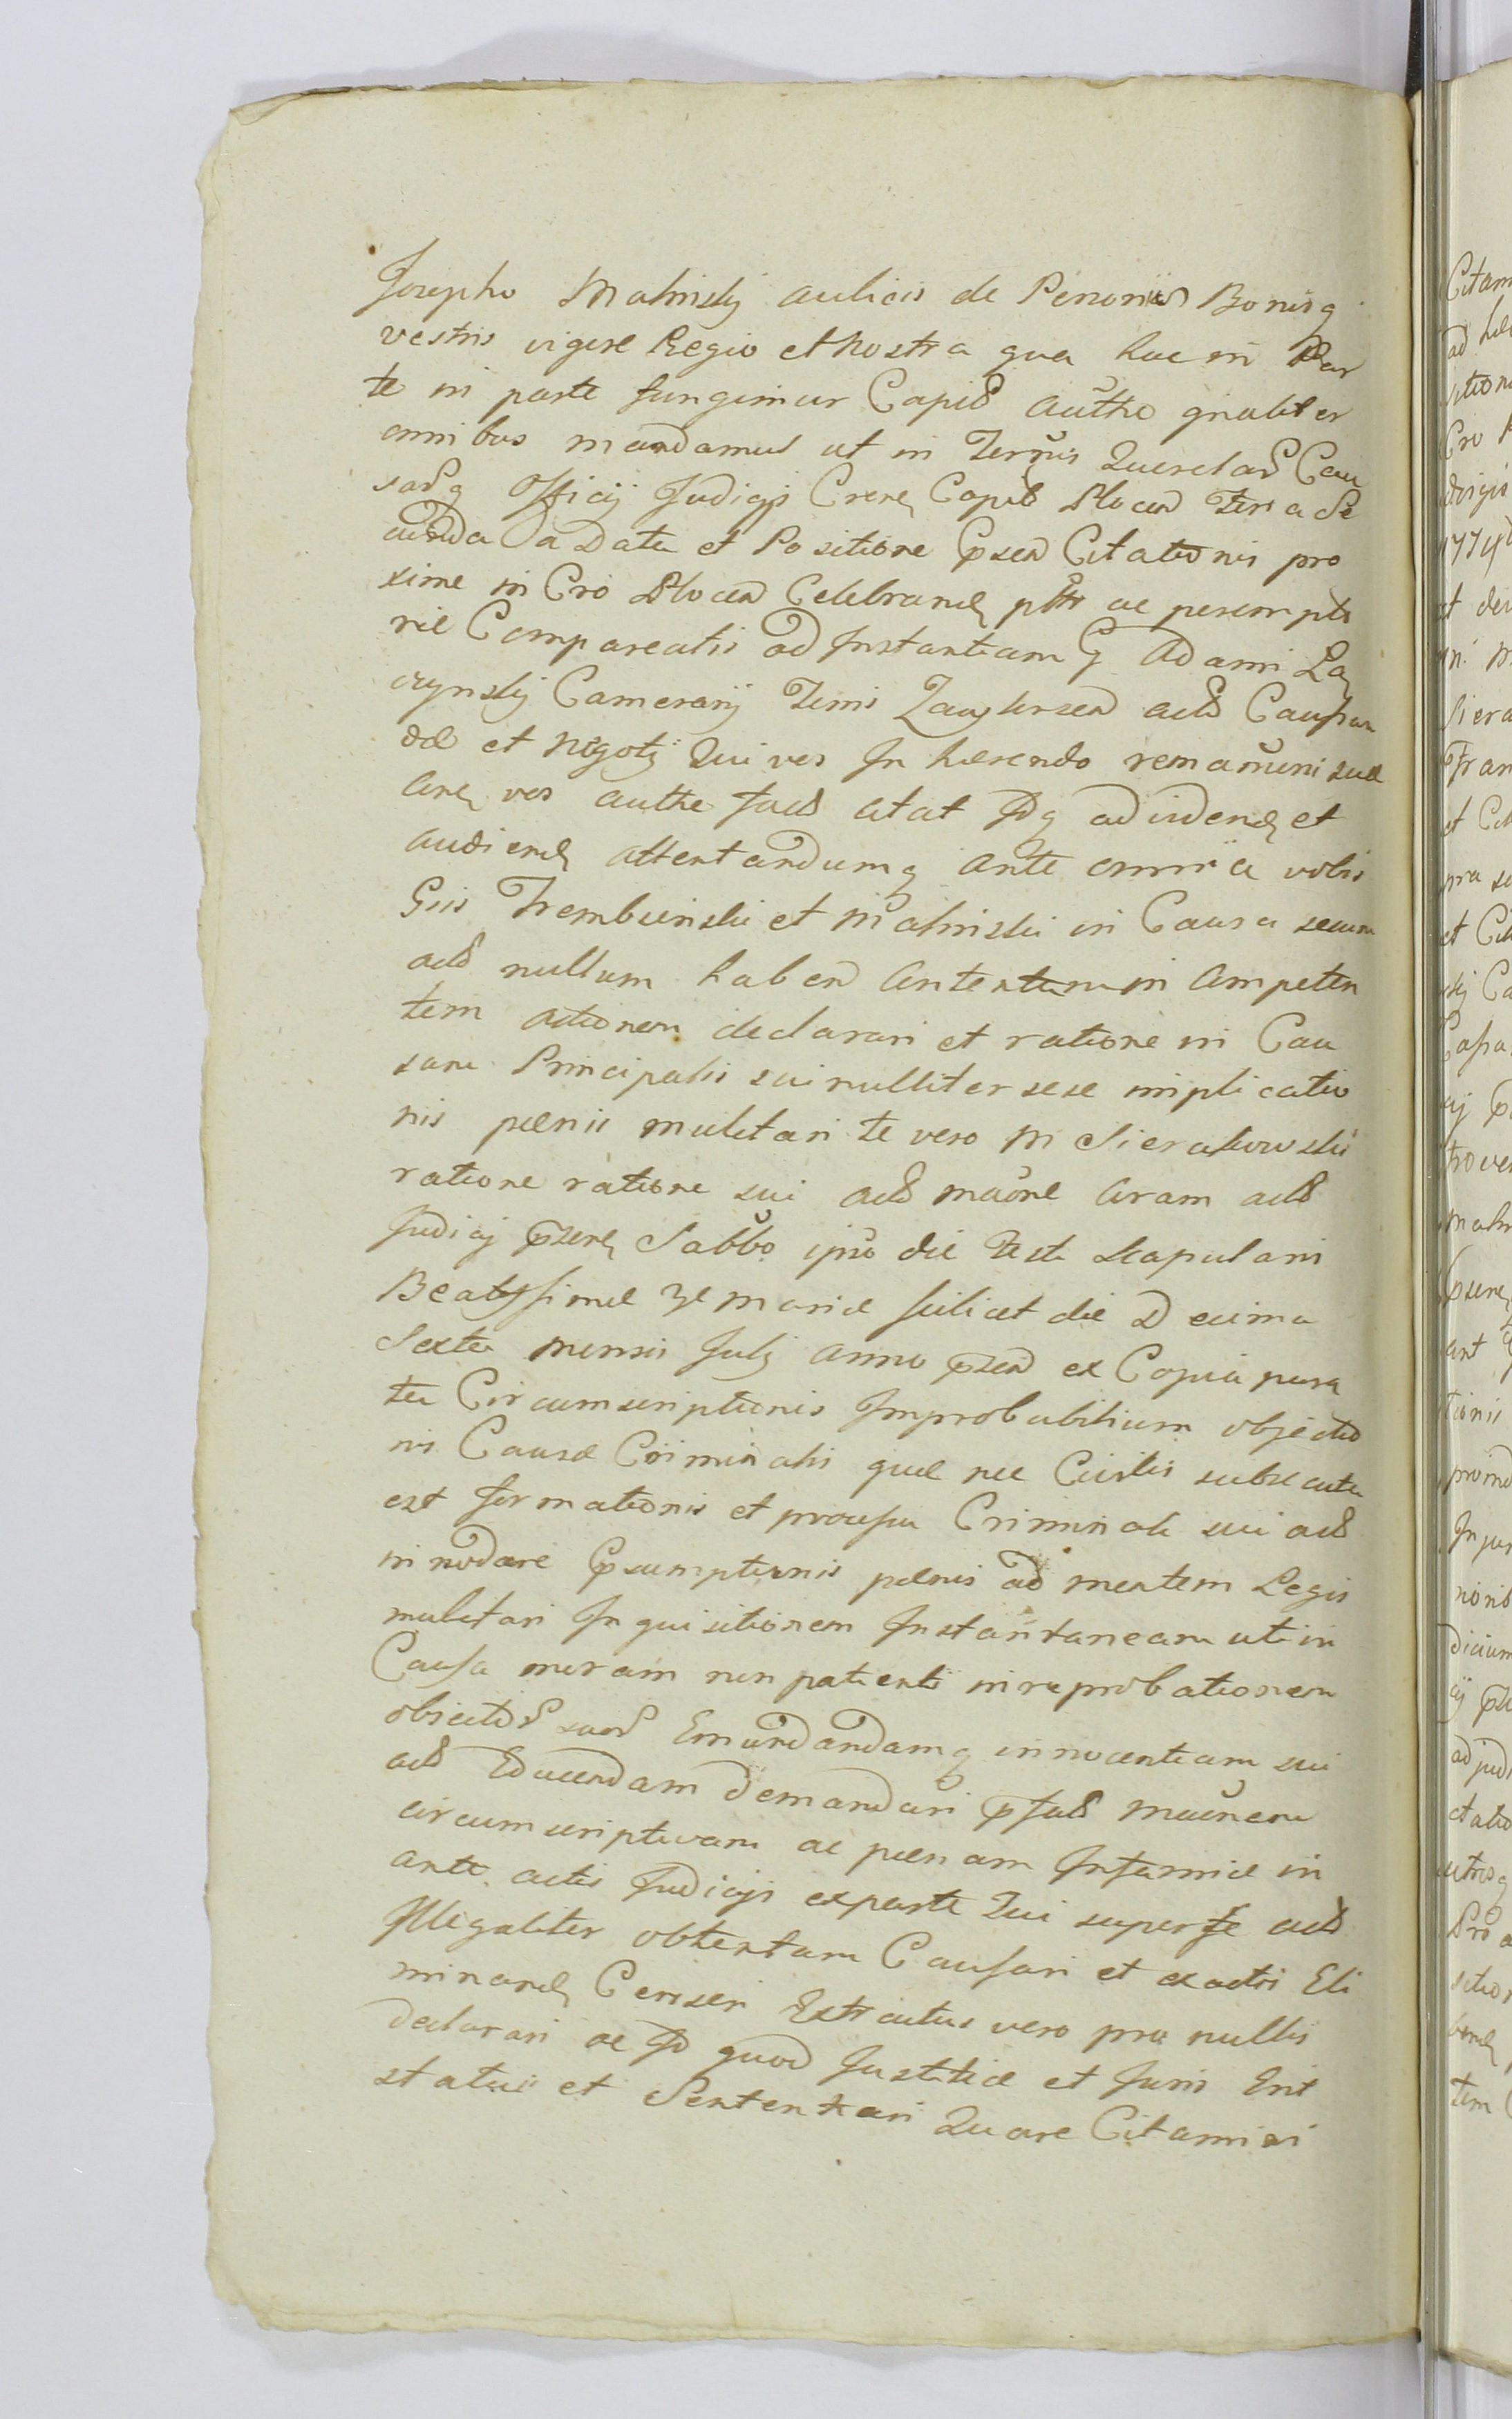 Josepho Malinskij aulicis de Personis Bonisq
vestris vigore Regio et Nostra qua hac in Par
te in parte fungimur Capid Autho gnaliter
omnibus mandamus ut in Terminis Querelad Cau
sadq Officij Judicijs Crenẽ Capid Plocen Feria Se
cunda a Data et Positione Psen Citationis pro
xime in Cro Plocen Celebrandę pltr ac perempto
rie Compareatis ad Instantiam G Adami Lą
czynskij Camerarij Terris Zawskrzen actd Causan
dæ et Negotij Qui vos In hærendo remamuni suæ
Anę vos authe factd citat Idq ad videndę et
audiendę attentandumq ante omnia vobis
Gsis Trembinski et Malinski in Causa secum
actd nullum haben Antentum in Competen
tem actionem declarari et ratione in Cau
sam Principalis sui nulliter sese implicatio
nis pœnis mulctari te vero M Sierakowski
ratione ratione sui actd maõne Coram actd
Judicij pserę Sabbo ipso die Festi Scapularis
Beatissimæ V Mariæ scilicet die Decima
Sexta Mensis Julij Anno psen ex Copia para
ta Circumscriptionis Improbabilium objectio
nis Causæ Criminalis quæ nec Civilis subsecuta
est formationis et processu Criminali sui actd
innodare Psumptionis pœnis ad mentem Legis
mulctari Inquisitionem Instantaneam uti in
Causa moram non patienti in reprobationem
objectod suod Emundandamq innocentiam sui
actd Educendam demandari psatd maõnem
circumscriptivam ac pœnam Infamiæ in
ante actis Judicijs exparte Tui super se actd
Illegaliter obtentam Cassari et ex actis Eli
minandę Censeri Extractus vero pro nullis
declarari ac Id quod Justitiæ et Juris Erit
statui et Sententiari Quare Citamini